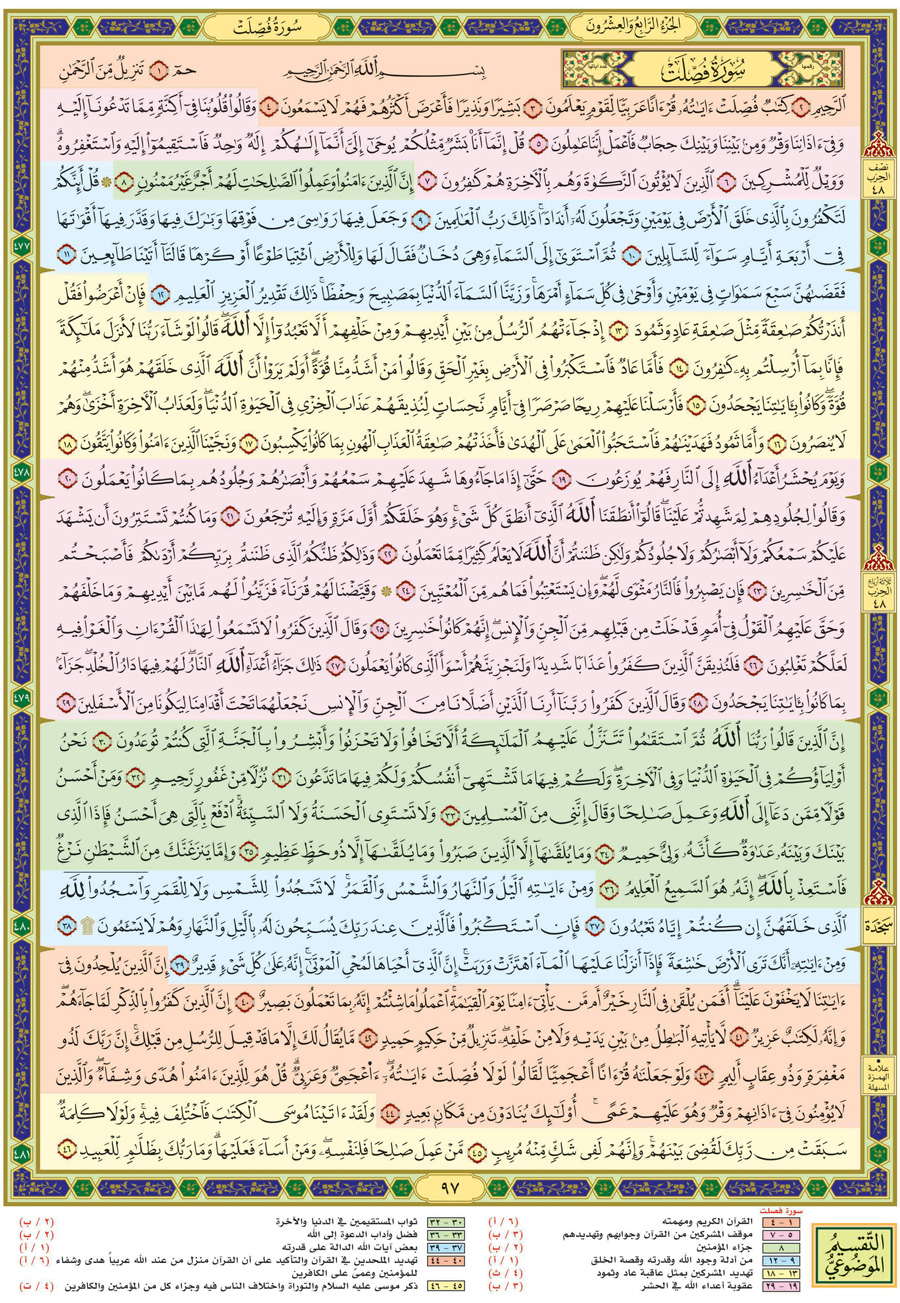 الجُزْءُ الرَّابِعُ وَالعِشْرُونَ
سُورَةُ فُصِّلَتْ
سُورَةُ فُصِّلَتْ
بِسْمِ ٱللَّهِ ٱلرَّحْمَٰنِ ٱلرَّحِيمِ
حمٓ ١ تَنزِيلٌ مِّنَ ٱلرَّحْمَٰنِ
ٱلرَّحِيمِ ٢ كِتَٰبٌ فُصِّلَتْ ءَايَٰتُهُۥ قُرْءَانًا عَرَبِيًّا لِّقَوْمٍ يَعْلَمُونَ ٣ بَشِيرًا وَنَذِيرًا فَأَعْرَضَ أَكْثَرُهُمْ فَهُمْ لَا يَسْمَعُونَ ٤ وَقَالُوا۟ قُلُوبُنَا فِىٓ أَكِنَّةٍ مِّمَّا تَدْعُونَآ إِلَيْهِ
وَفِىٓ ءَاذَانِنَا وَقْرٌ وَمِنۢ بَيْنِنَا وَبَيْنِكَ حِجَابٌ فَٱعْمَلْ إِنَّنَا عَٰمِلُونَ ٥ قُلْ إِنَّمَآ أَنَا۠ بَشَرٌ مِّثْلُكُمْ يُوحَىٰٓ إِلَىَّ أَنَّمَآ إِلَٰهُكُمْ إِلَٰهٌ وَٰحِدٌ فَٱسْتَقِيمُوٓا۟ إِلَيْهِ وَٱسْتَغْفِرُوهُ ۗ
وَوَيْلٌ لِّلْمُشْرِكِينَ ٦ ٱلَّذِينَ لَا يُؤْتُونَ ٱلزَّكَوٰةَ وَهُم بِٱلْءَاخِرَةِ هُمْ كَٰفِرُونَ ٧ إِنَّ ٱلَّذِينَ ءَامَنُوا۟ وَعَمِلُوا۟ ٱلصَّٰلِحَٰتِ لَهُمْ أَجْرٌ غَيْرُ مَمْنُونٍ ٨ ۞ قُلْ أَئِنَّكُمْ
نصف الحزب ٤٨
لَتَكْفُرُونَ بِٱلَّذِى خَلَقَ ٱلْأَرْضَ فِى يَوْمَيْنِ وَتَجْعَلُونَ لَهُۥٓ أَندَادًا ۚ ذَٰلِكَ رَبُّ ٱلْعَٰلَمِينَ ٩ وَجَعَلَ فِيهَا رَوَٰسِىَ مِن فَوْقِهَا وَبَٰرَكَ فِيهَا وَقَدَّرَ فِيهَآ أَقْوَٰتَهَا
فِىٓ أَرْبَعَةِ أَيَّامٍ سَوَآءً لِّلسَّآئِلِينَ ١٠ ثُمَّ ٱسْتَوَىٰٓ إِلَى ٱلسَّمَآءِ وَهِىَ دُخَانٌ فَقَالَ لَهَا وَلِلْأَرْضِ ٱئْتِيَا طَوْعًا أَوْ كَرْهًا قَالَتَآ أَتَيْنَا طَآئِعِينَ ١١
٤٧٧
فَقَضَىٰهُنَّ سَبْعَ سَمَٰوَاتٍ فِى يَوْمَيْنِ وَأَوْحَىٰ فِى كُلِّ سَمَآءٍ أَمْرَهَا ۚ وَزَيَّنَّا ٱلسَّمَآءَ ٱلدُّنْيَا بِمَصَٰبِيحَ وَحِفْظًا ۚ ذَٰلِكَ تَقْدِيرُ ٱلْعَزِيزِ ٱلْعَلِيمِ ١٢ فَإِنْ أَعْرَضُوا۟ فَقُلْ
أَنذَرْتُكُمْ صَٰعِقَةً مِّثْلَ صَٰعِقَةِ عَادٍ وَثَمُودَ ١٣ إِذْ جَآءَتْهُمُ ٱلرُّسُلُ مِنۢ بَيْنِ أَيْدِيهِمْ وَمِنْ خَلْفِهِمْ أَلَّا تَعْبُدُوٓا۟ إِلَّا ٱللَّهَ ۖ قَالُوا۟ لَوْ شَآءَ رَبُّنَا لَأَنزَلَ مَلَٰٓئِكَةً
فَإِنَّا بِمَآ أُرْسِلْتُم بِهِۦ كَٰفِرُونَ ١٤ فَأَمَّا عَادٌ فَٱسْتَكْبَرُوا۟ فِى ٱلْأَرْضِ بِغَيْرِ ٱلْحَقِّ وَقَالُوا۟ مَنْ أَشَدُّ مِنَّا قُوَّةً ۖ أَوَلَمْ يَرَوْا۟ أَنَّ ٱللَّهَ ٱلَّذِى خَلَقَهُمْ هُوَ أَشَدُّ مِنْهُمْ
قُوَّةً ۖ وَكَانُوا۟ بِـَٔايَٰتِنَا يَجْحَدُونَ ١٥ فَأَرْسَلْنَا عَلَيْهِمْ رِيحًا صَرْصَرًا فِىٓ أَيَّامٍ نَّحِسَاتٍ لِّنُذِيقَهُمْ عَذَابَ ٱلْخِزْىِ فِى ٱلْحَيَوٰةِ ٱلدُّنْيَا ۖ وَلَعَذَابُ ٱلْءَاخِرَةِ أَخْزَىٰ ۖ وَهُمْ
لَا يُنصَرُونَ ١٦ وَأَمَّا ثَمُودُ فَهَدَيْنَٰهُمْ فَٱسْتَحَبُّوا۟ ٱلْعَمَىٰ عَلَى ٱلْهُدَىٰ فَأَخَذَتْهُمْ صَٰعِقَةُ ٱلْعَذَابِ ٱلْهُونِ بِمَا كَانُوا۟ يَكْسِبُونَ ١٧ وَنَجَّيْنَا ٱلَّذِينَ ءَامَنُوا۟ وَكَانُوا۟ يَتَّقُونَ ١٨
وَيَوْمَ يُحْشَرُ أَعْدَآءُ ٱللَّهِ إِلَى ٱلنَّارِ فَهُمْ يُوزَعُونَ ١٩ حَتَّىٰٓ إِذَا مَا جَآءُوهَا شَهِدَ عَلَيْهِمْ سَمْعُهُمْ وَأَبْصَٰرُهُمْ وَجُلُودُهُم بِمَا كَانُوا۟ يَعْمَلُونَ ٢٠
٤٧٨
وَقَالُوا۟ لِجُلُودِهِمْ لِمَ شَهِدتُّمْ عَلَيْنَا ۖ قَالُوٓا۟ أَنطَقَنَا ٱللَّهُ ٱلَّذِىٓ أَنطَقَ كُلَّ شَىْءٍ ۚ وَهُوَ خَلَقَكُمْ أَوَّلَ مَرَّةٍ وَإِلَيْهِ تُرْجَعُونَ ٢١ وَمَا كُنتُمْ تَسْتَتِرُونَ أَن يَشْهَدَ
عَلَيْكُمْ سَمْعُكُمْ وَلَآ أَبْصَٰرُكُمْ وَلَا جُلُودُكُمْ وَلَٰكِن ظَنَنتُمْ أَنَّ ٱللَّهَ لَا يَعْلَمُ كَثِيرًا مِّمَّا تَعْمَلُونَ ٢٢ وَذَٰلِكُمْ ظَنُّكُمُ ٱلَّذِى ظَنَنتُم بِرَبِّكُمْ أَرْدَىٰكُمْ فَأَصْبَحْتُم
مِّنَ ٱلْخَٰسِرِينَ ٢٣ فَإِن يَصْبِرُوا۟ فَٱلنَّارُ مَثْوًى لَّهُمْ ۖ وَإِن يَسْتَعْتِبُوا۟ فَمَا هُم مِّنَ ٱلْمُعْتَبِينَ ٢٤ ۞ وَقَيَّضْنَا لَهُمْ قُرَنَآءَ فَزَيَّنُوا۟ لَهُم مَّا بَيْنَ أَيْدِيهِمْ وَمَا خَلْفَهُمْ
ثلاثة أرباع الحزب ٤٨
وَحَقَّ عَلَيْهِمُ ٱلْقَوْلُ فِىٓ أُمَمٍ قَدْ خَلَتْ مِن قَبْلِهِم مِّنَ ٱلْجِنِّ وَٱلْإِنسِ ۖ إِنَّهُمْ كَانُوا۟ خَٰسِرِينَ ٢٥ وَقَالَ ٱلَّذِينَ كَفَرُوا۟ لَا تَسْمَعُوا۟ لِهَٰذَا ٱلْقُرْءَانِ وَٱلْغَوْا۟ فِيهِ
لَعَلَّكُمْ تَغْلِبُونَ ٢٦ فَلَنُذِيقَنَّ ٱلَّذِينَ كَفَرُوا۟ عَذَابًا شَدِيدًا وَلَنَجْزِيَنَّهُمْ أَسْوَأَ ٱلَّذِى كَانُوا۟ يَعْمَلُونَ ٢٧ ذَٰلِكَ جَزَآءُ أَعْدَآءِ ٱللَّهِ ٱلنَّارُ ۖ لَهُمْ فِيهَا دَارُ ٱلْخُلْدِ ۖ جَزَآءًۢ
بِمَا كَانُوا۟ بِـَٔايَٰتِنَا يَجْحَدُونَ ٢٨ وَقَالَ ٱلَّذِينَ كَفَرُوا۟ رَبَّنَآ أَرِنَا ٱلَّذَيْنِ أَضَلَّانَا مِنَ ٱلْجِنِّ وَٱلْإِنسِ نَجْعَلْهُمَا تَحْتَ أَقْدَامِنَا لِيَكُونَا مِنَ ٱلْأَسْفَلِينَ ٢٩
٤٧٩
إِنَّ ٱلَّذِينَ قَالُوا۟ رَبُّنَا ٱللَّهُ ثُمَّ ٱسْتَقَٰمُوا۟ تَتَنَزَّلُ عَلَيْهِمُ ٱلْمَلَٰٓئِكَةُ أَلَّا تَخَافُوا۟ وَلَا تَحْزَنُوا۟ وَأَبْشِرُوا۟ بِٱلْجَنَّةِ ٱلَّتِى كُنتُمْ تُوعَدُونَ ٣٠ نَحْنُ
أَوْلِيَآؤُكُمْ فِى ٱلْحَيَوٰةِ ٱلدُّنْيَا وَفِى ٱلْءَاخِرَةِ ۖ وَلَكُمْ فِيهَا مَا تَشْتَهِىٓ أَنفُسُكُمْ وَلَكُمْ فِيهَا مَا تَدَّعُونَ ٣١ نُزُلًا مِّنْ غَفُورٍ رَّحِيمٍ ٣٢ وَمَنْ أَحْسَنُ
قَوْلًا مِّمَّن دَعَآ إِلَى ٱللَّهِ وَعَمِلَ صَٰلِحًا وَقَالَ إِنَّنِى مِنَ ٱلْمُسْلِمِينَ ٣٣ وَلَا تَسْتَوِى ٱلْحَسَنَةُ وَلَا ٱلسَّيِّئَةُ ۚ ٱدْفَعْ بِٱلَّتِى هِىَ أَحْسَنُ فَإِذَا ٱلَّذِى
بَيْنَكَ وَبَيْنَهُۥ عَدَٰوَةٌ كَأَنَّهُۥ وَلِىٌّ حَمِيمٌ ٣٤ وَمَا يُلَقَّىٰهَآ إِلَّا ٱلَّذِينَ صَبَرُوا۟ وَمَا يُلَقَّىٰهَآ إِلَّا ذُو حَظٍّ عَظِيمٍ ٣٥ وَإِمَّا يَنزَغَنَّكَ مِنَ ٱلشَّيْطَٰنِ نَزْغٌ
فَٱسْتَعِذْ بِٱللَّهِ ۖ إِنَّهُۥ هُوَ ٱلسَّمِيعُ ٱلْعَلِيمُ ٣٦ وَمِنْ ءَايَٰتِهِ ٱلَّيْلُ وَٱلنَّهَارُ وَٱلشَّمْسُ وَٱلْقَمَرُ ۚ لَا تَسْجُدُوا۟ لِلشَّمْسِ وَلَا لِلْقَمَرِ وَٱسْجُدُوا۟ لِلَّهِ
ٱلَّذِى خَلَقَهُنَّ إِن كُنتُمْ إِيَّاهُ تَعْبُدُونَ ٣٧ فَإِنِ ٱسْتَكْبَرُوا۟ فَٱلَّذِينَ عِندَ رَبِّكَ يُسَبِّحُونَ لَهُۥ بِٱلَّيْلِ وَٱلنَّهَارِ وَهُمْ لَا يَسْـَٔمُونَ ۩ ٣٨
سَجْدَة
٤٨٠
وَمِنْ ءَايَٰتِهِۦٓ أَنَّكَ تَرَى ٱلْأَرْضَ خَٰشِعَةً فَإِذَآ أَنزَلْنَا عَلَيْهَا ٱلْمَآءَ ٱهْتَزَّتْ وَرَبَتْ ۚ إِنَّ ٱلَّذِىٓ أَحْيَاهَا لَمُحْىِ ٱلْمَوْتَىٰٓ ۚ إِنَّهُۥ عَلَىٰ كُلِّ شَىْءٍ قَدِيرٌ ٣٩ إِنَّ ٱلَّذِينَ يُلْحِدُونَ فِىٓ
ءَايَٰتِنَا لَا يَخْفَوْنَ عَلَيْنَآ ۗ أَفَمَن يُلْقَىٰ فِى ٱلنَّارِ خَيْرٌ أَم مَّن يَأْتِىٓ ءَامِنًا يَوْمَ ٱلْقِيَٰمَةِ ۚ ٱعْمَلُوا۟ مَا شِئْتُمْ ۖ إِنَّهُۥ بِمَا تَعْمَلُونَ بَصِيرٌ ٤٠ إِنَّ ٱلَّذِينَ كَفَرُوا۟ بِٱلذِّكْرِ لَمَّا جَآءَهُمْ ۖ
وَإِنَّهُۥ لَكِتَٰبٌ عَزِيزٌ ٤١ لَّا يَأْتِيهِ ٱلْبَٰطِلُ مِنۢ بَيْنِ يَدَيْهِ وَلَا مِنْ خَلْفِهِۦ ۖ تَنزِيلٌ مِّنْ حَكِيمٍ حَمِيدٍ ٤٢ مَّا يُقَالُ لَكَ إِلَّا مَا قَدْ قِيلَ لِلرُّسُلِ مِن قَبْلِكَ ۚ إِنَّ رَبَّكَ لَذُو
مَغْفِرَةٍ وَذُو عِقَابٍ أَلِيمٍ ٤٣ وَلَوْ جَعَلْنَٰهُ قُرْءَانًا أَعْجَمِيًّا لَّقَالُوا۟ لَوْلَا فُصِّلَتْ ءَايَٰتُهُۥٓ ۖ ءَا۬عْجَمِىٌّ وَعَرَبِىٌّ ۗ قُلْ هُوَ لِلَّذِينَ ءَامَنُوا۟ هُدًى وَشِفَآءٌ ۖ وَٱلَّذِينَ
علامة الهمزة المسهلة
لَا يُؤْمِنُونَ فِىٓ ءَاذَانِهِمْ وَقْرٌ وَهُوَ عَلَيْهِمْ عَمًى ۚ أُو۟لَٰٓئِكَ يُنَادَوْنَ مِن مَّكَانٍۭ بَعِيدٍ ٤٤ وَلَقَدْ ءَاتَيْنَا مُوسَى ٱلْكِتَٰبَ فَٱخْتُلِفَ فِيهِ ۗ وَلَوْلَا كَلِمَةٌ
سَبَقَتْ مِن رَّبِّكَ لَقُضِىَ بَيْنَهُمْ ۚ وَإِنَّهُمْ لَفِى شَكٍّ مِّنْهُ مُرِيبٍ ٤٥ مَّنْ عَمِلَ صَٰلِحًا فَلِنَفْسِهِۦ ۖ وَمَنْ أَسَآءَ فَعَلَيْهَا ۗ وَمَا رَبُّكَ بِظَلَّٰمٍ لِّلْعَبِيدِ ٤٦
٤٨١
٩٧
التَّقْسِيمُ المَوْضُوعِيُّ
سورة فصلت
١ - ٤ القرآن الكريم ومهمته (٦ / أ)
٥ - ٧ موقف المشركين من القرآن وجوابهم وتهديدهم (٣ / ب)
٨ جزاء المؤمنين (٢ / ب)
٩ - ١٢ من أدلة وجود الله وقدرته وقصة الخلق (١ / أ)
١٣ - ١٨ تهديد المشركين بمثل عاقبة عاد وثمود (٤ / ث)
١٩ - ٢٩ عقوبة أعداء الله في الحشر (٣ / ب)
٣٠ - ٣٢ ثواب المستقيمين في الدنيا والآخرة (٢ / ب)
٣٣ - ٣٦ فضل وآداب الدعوة إلى الله (٢ / ب)
٣٧ - ٣٩ بعض آيات الله الدالة على قدرته (١ / أ)
٤٠ - ٤٤ تهديد الملحدين في القرآن والتأكيد على أن القرآن منزل من عند الله عربياً هدى وشفاء (٦ / أ)
للمؤمنين وعمىً على الكافرين
٤٥ - ٤٦ ذكر موسى عليه السلام والتوراة واختلاف الناس فيه وجزاء كل من المؤمنين والكافرين (٤ / ت)